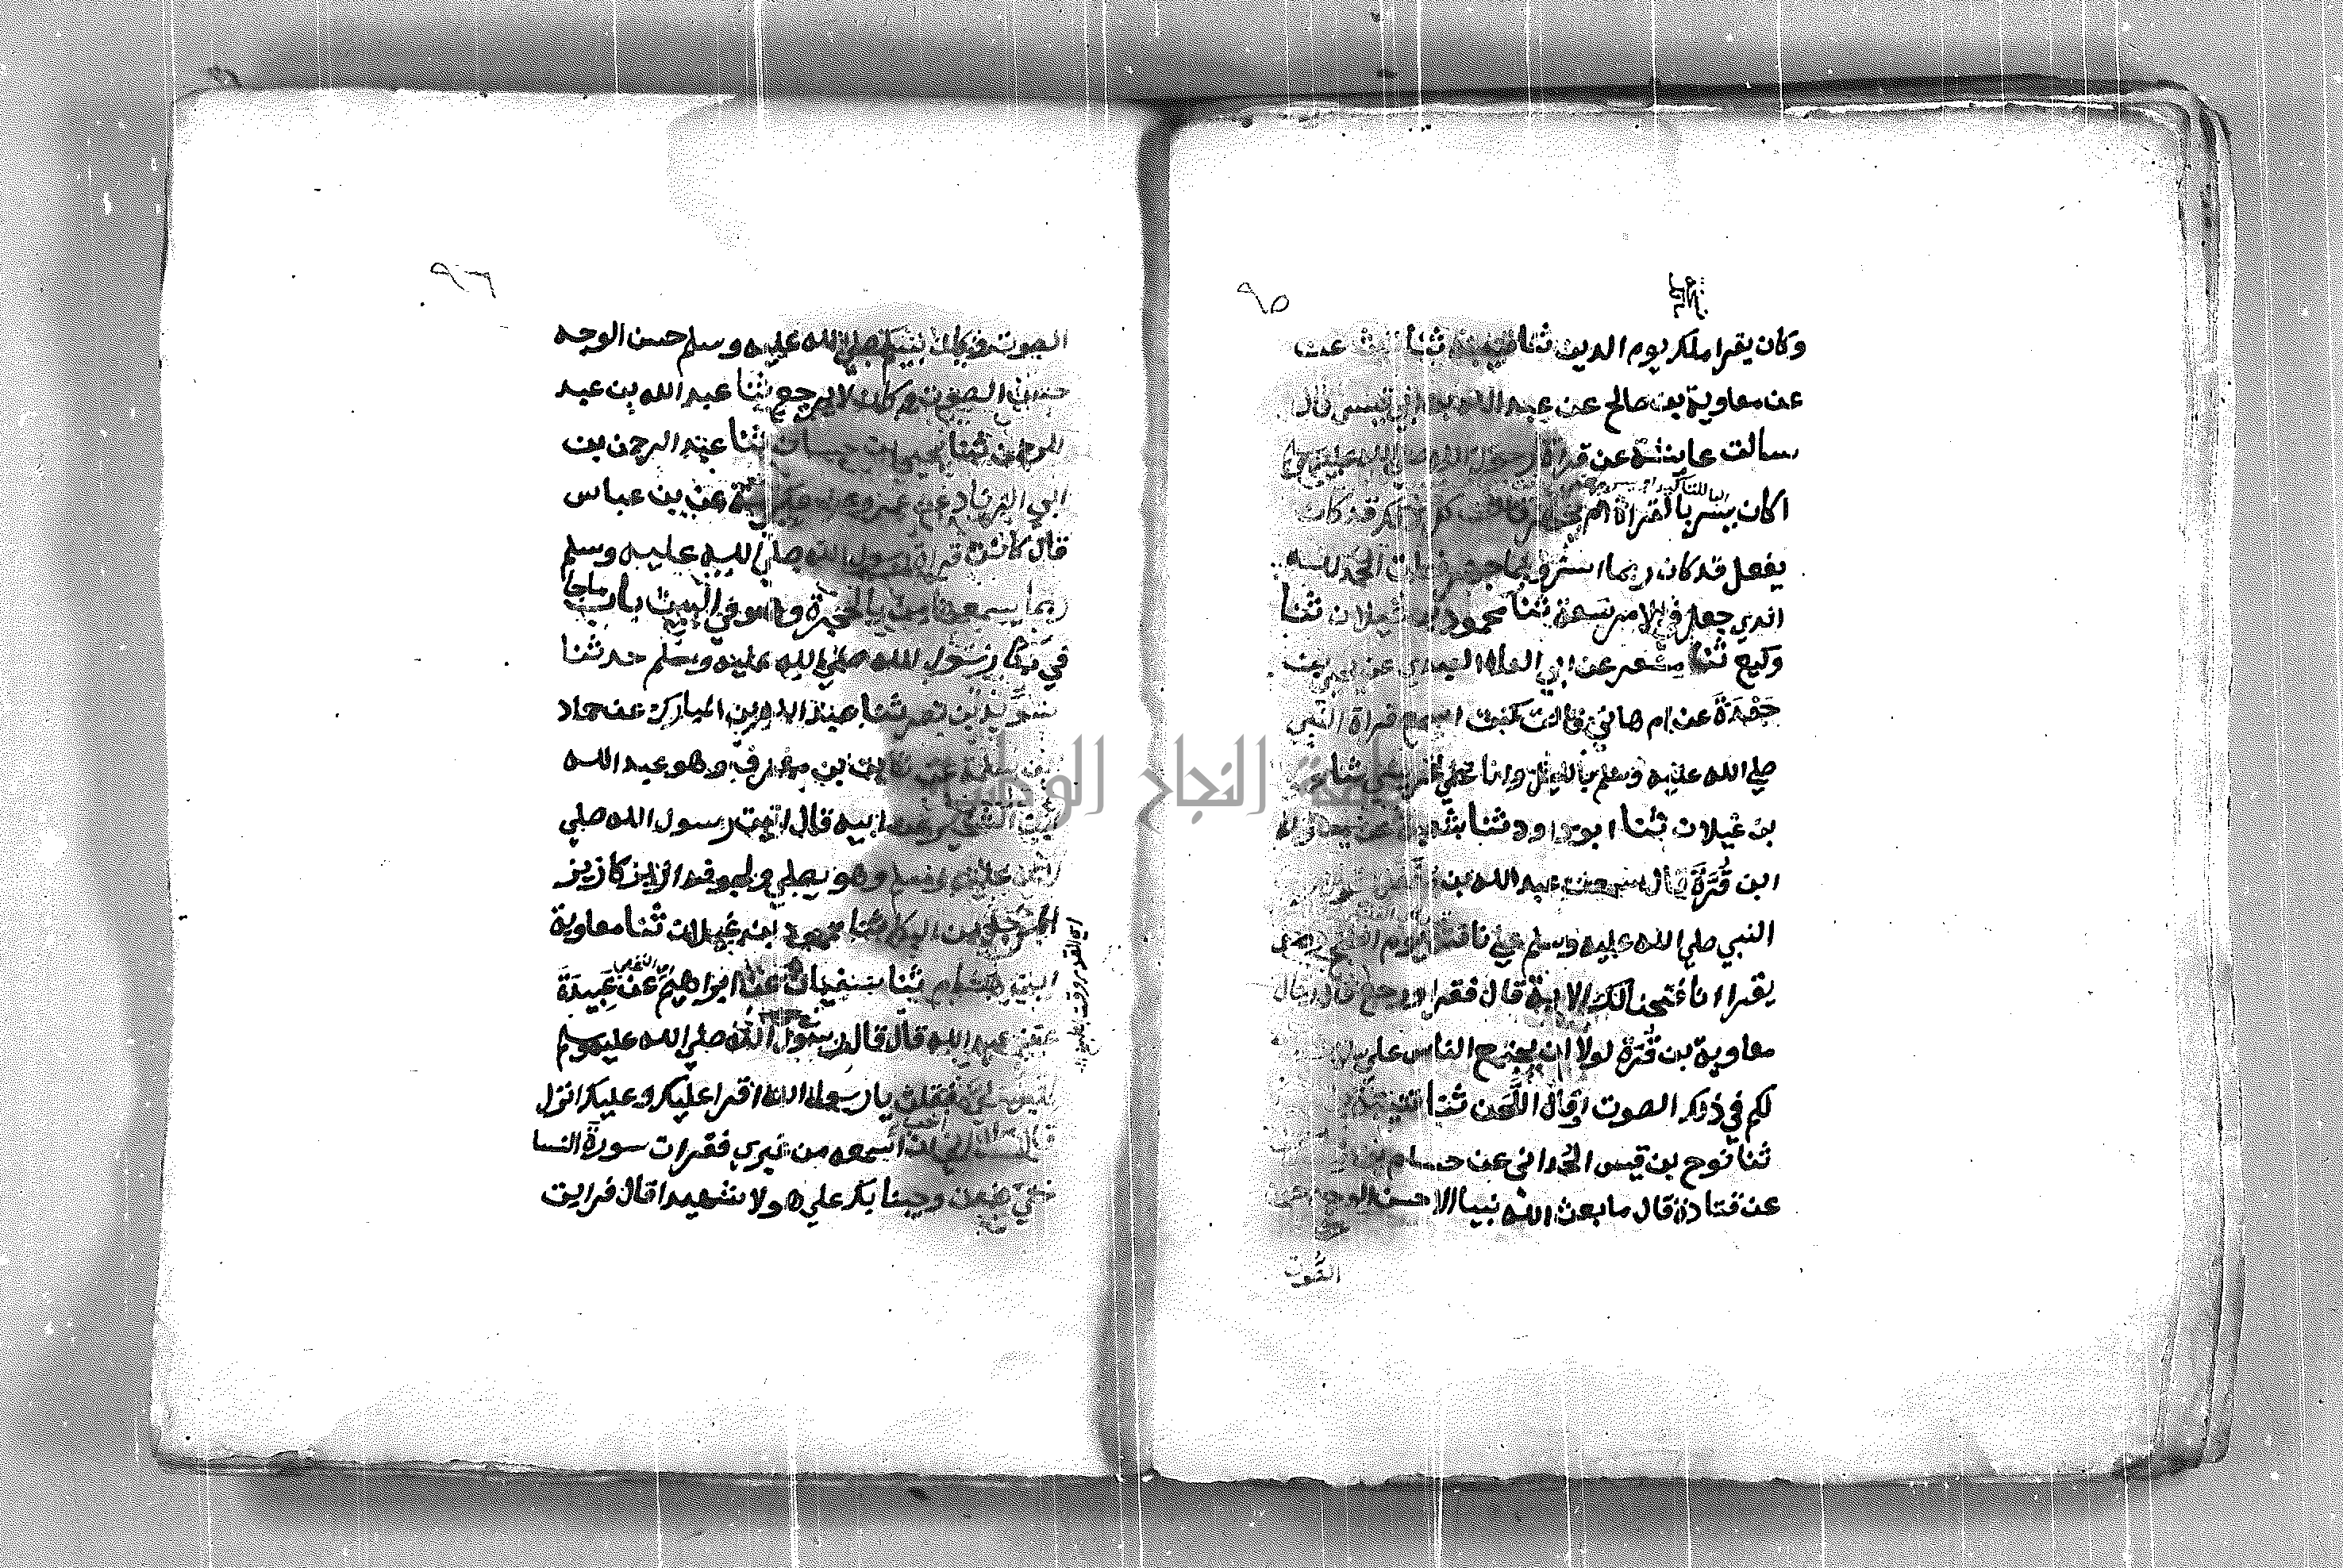 ٩٥
وكان يقرا ملك يوم الدين ثنا قتيبة ثنا الليث عن
عن معاوية بن صالح عن عبد الله بن ابي قيس قال
سالت عايشة عن قراة رسول الله صلى الله عليه
اكان يسر بالقراة ام يجهر قالت كل ذلك قد كان
يفعل قد كان ربما اسر وربما جهر فقلت الحمد لله
الذي جعل في الامر سعة ثنا محمود بن غيلان ثنا
وكيع ثنا مسعر عن ابي العلاء العبدي عن يحيى بن
جَعْدَةَ عن ام هاني قالت كنت اسمع قراة النبي
صلي الله عليه وسلم بالليل وانا علي عريشي ثنا
بن غيلان ثنا ابو داود ثنا شعبة عن معاوية
ابن قُرَّةَ قال سمعت عبد الله بن مغفل يقول
النبي صلي الله عليه وسلم علي ناقته يوم الفتح وهو
يقرا انا فتحنا لك الاية قال فقرا ورجع قال وقال
معاوية بن قُرّة لولا ان يجتمع الناس علي
لكم في ذلك الصوت او قال اللَّحن ثنا قتيبة
ثنا نوح بن قيس الحُداني عن حسام بن
عن قتادة قال ما بعث الله نبيا الا حسن الوجه حسن
الصوت
٩٦
الصوت وكان نبيكم صلى الله عليه وسلم حسن الوجه
حسن الصوت وكان لا يرجع ثنا عبد الله بن عبد
الرحمن ثنا يحيى بن حسان ثنا عبد الرحمن بن
ابي الزناد عن عمرو عن عكرمة عن بن عباس
قال كانت قراة رسول الله صلي الله عليه وسلم
ربما يسمعها من بالحجرة وهو في البيت باب ماجا
في بكا رسول الله صلي الله عليه وسلم حدثنا
سويد بن نصر ثنا عبد الله بن المبارك عن حماد
بن سلمة عن ثابت بن مطرف وهو عبد الله
ابن الشخير عن ابيه قال اتيت رسول الله صلي
الله عليه وسلم وهو يصلي ولجوفه ازيز كازيز
المرجل من البكا ثنا محمود ابن غيلان ثنا معاوية
ابن هشام ثنا سفيان عن ابراهيم عن عَبِيدَةَ
عن عبد الله قال قال رسول الله صلي الله عليه وسلم
فقلت يا رسول الله اقرا عليك وعليك انزل
قال اني احب ان اسمعه من غيري فقرات سورة النسا
حتي وجينا بك علي هولا شهيدا قال فرايت
جامعة النجاح الوطنية